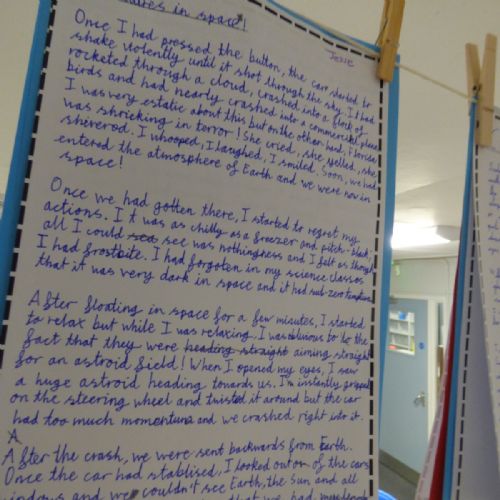 in space!
Jessie
Once I had pressed the button, the car started to
shake violently until it shot through the sky. It had
rocketed through a cloud, crashed into a flock of
birds and had nearly crashed into a commercial plane
I was very estatic about this but on the other hand, Florida
was shricking in terror! She cried, she yelled, she
shivered. I whooped, I laughed, I smiled. Soon, we had
entered the atmosphere of Earth and we were now in
space!
Once we had gotten there, I started to regret my
actions. It was as chilly as a freezer and pitch-black,
all I could sea see was nothingness and I felt as though
I had frostbite. I had forgoten in my science classes
that it was very dark in space and it had sub-zero
After floating in space for a few minutes, I started
to relax but while I was relaxing, I was to the
fact that they were heading straight aiming straight
for an astroid field! When I opened my eyes, I saw
a huge astroid heading towards us. I'm instantly gripped
on the steering wheel and twisted it around but the car
had too much momentum and we crashed right into it.
A
After the crash, we were sent backwards from Earth.
Once the car had stablised, I looked out of the cars
and we couldn't see Earth, the Sun and all
that we had